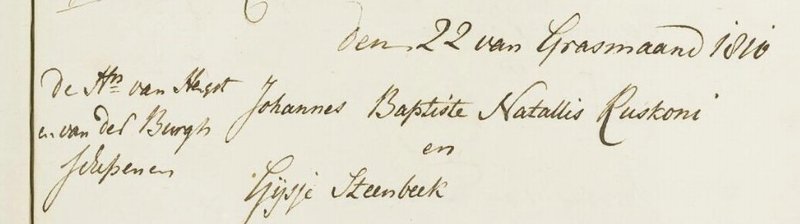 den 22 van Grasmaand 1810
De Hrn van Hegst
en van der Burgh
schepenen
Johannes Baptiste Natallis Ruskoni
en
Gijsje Steenbeek